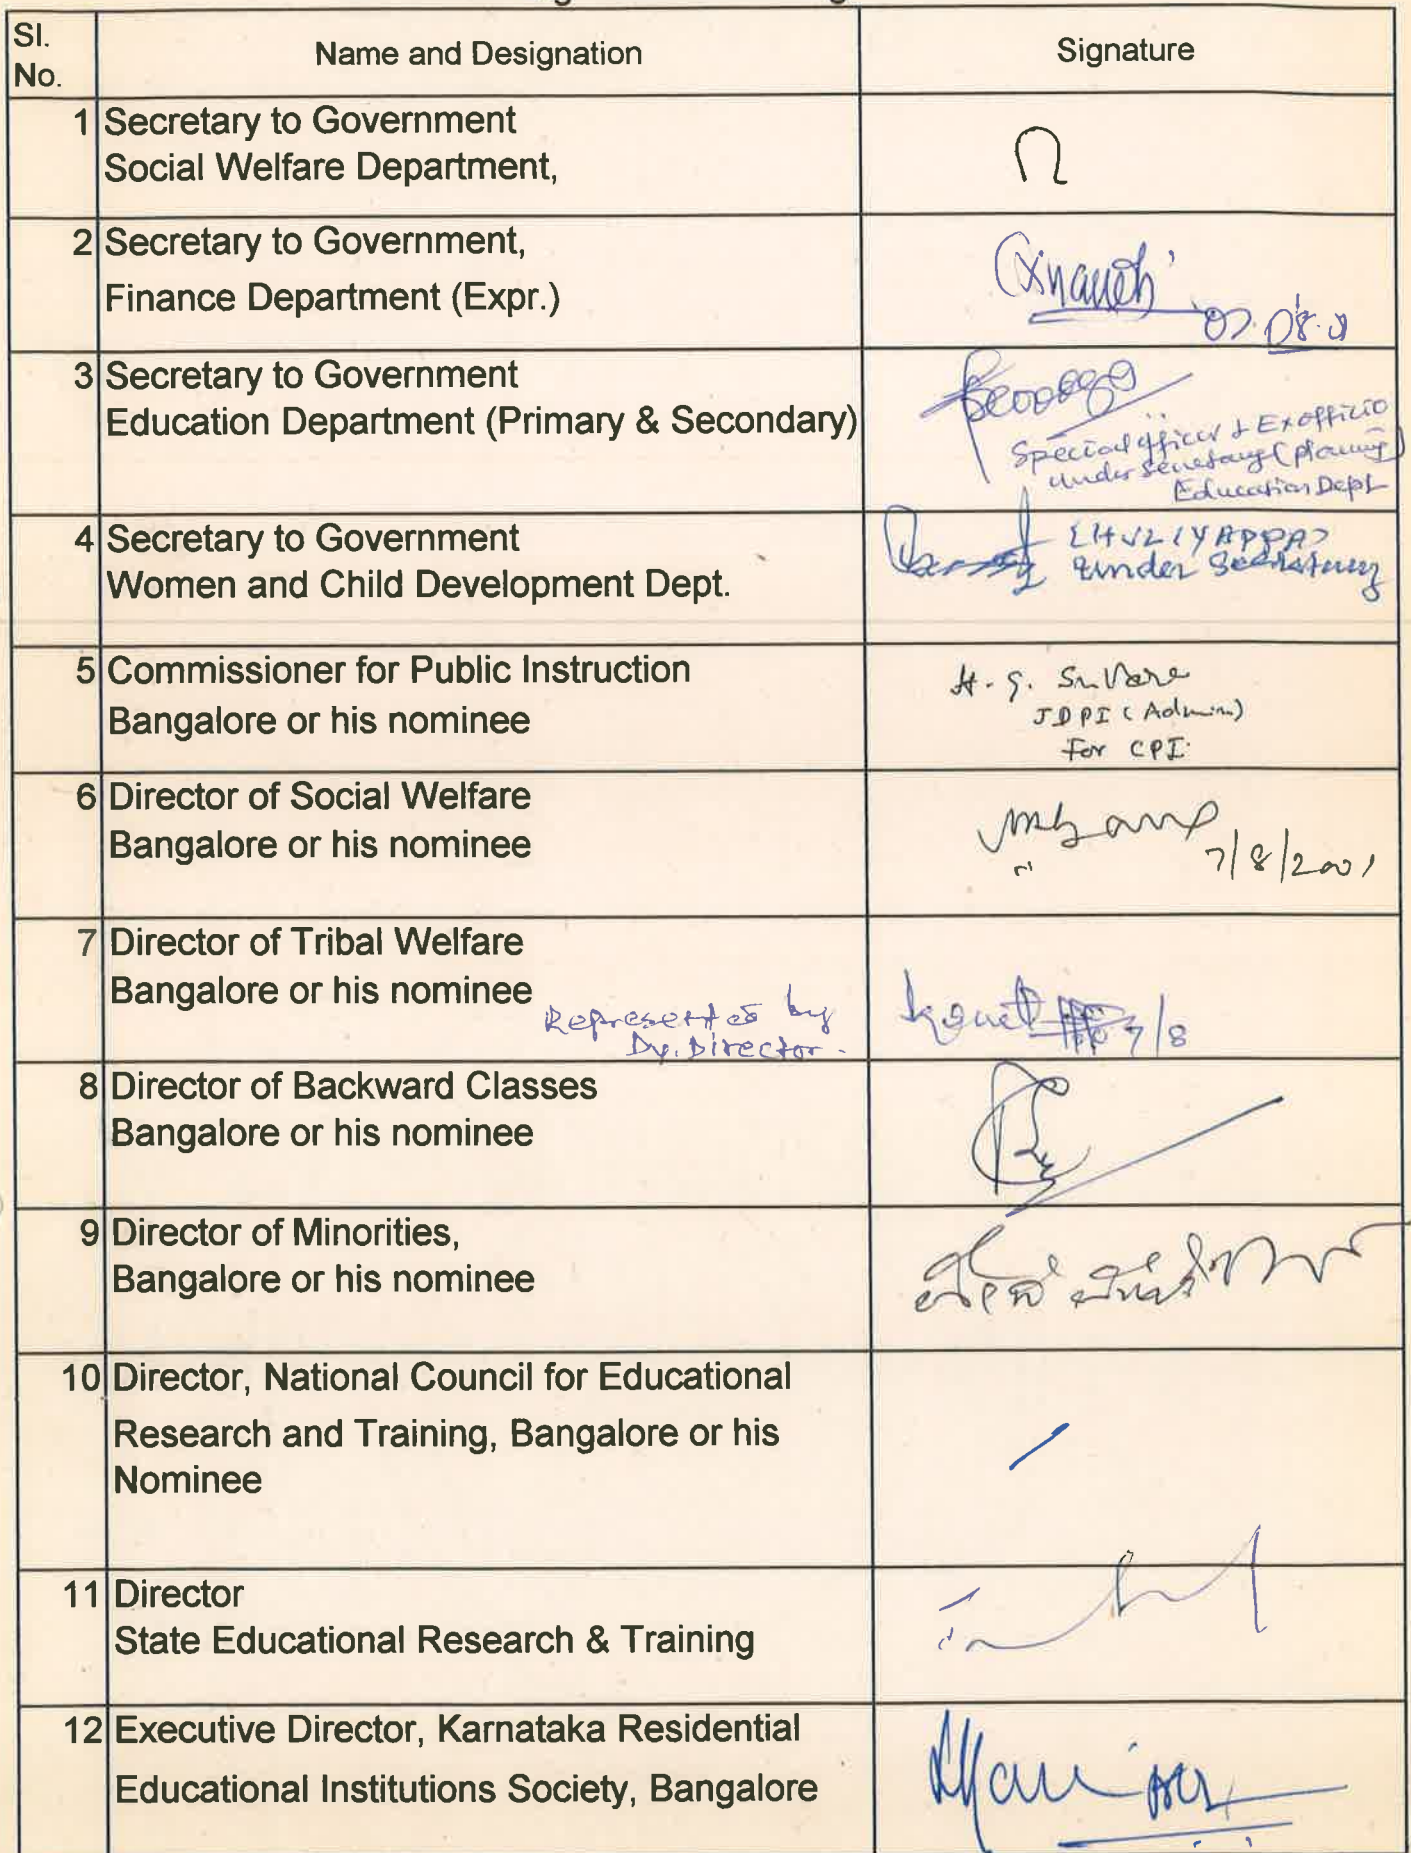 Sl.
No.
Name and Designation
Signature
1 Secretary to Government
Social Welfare Department,
2 Secretary to Government,
Finance Department (Expr.)
07.08.01
3 Secretary to Government
Education Department (Primary & Secondary)
Special officer & Exofficio
under secretary (planning)
Education Dept
4 Secretary to Government
Women and Child Development Dept.
under Secretary
5 Commissioner for Public Instruction
Bangalore or his nominee
JDPI (Admin)
For CPI
6 Director of Social Welfare
Bangalore or his nominee
7/8/2001
7 Director of Tribal Welfare
Bangalore or his nominee
Represented by
Dy. Director.
7/8
8 Director of Backward Classes
Bangalore or his nominee
9 Director of Minorities,
Bangalore or his nominee
10 Director, National Council for Educational
Research and Training, Bangalore or his
Nominee
11 Director
State Educational Research & Training
12 Executive Director, Karnataka Residential
Educational Institutions Society, Bangalore